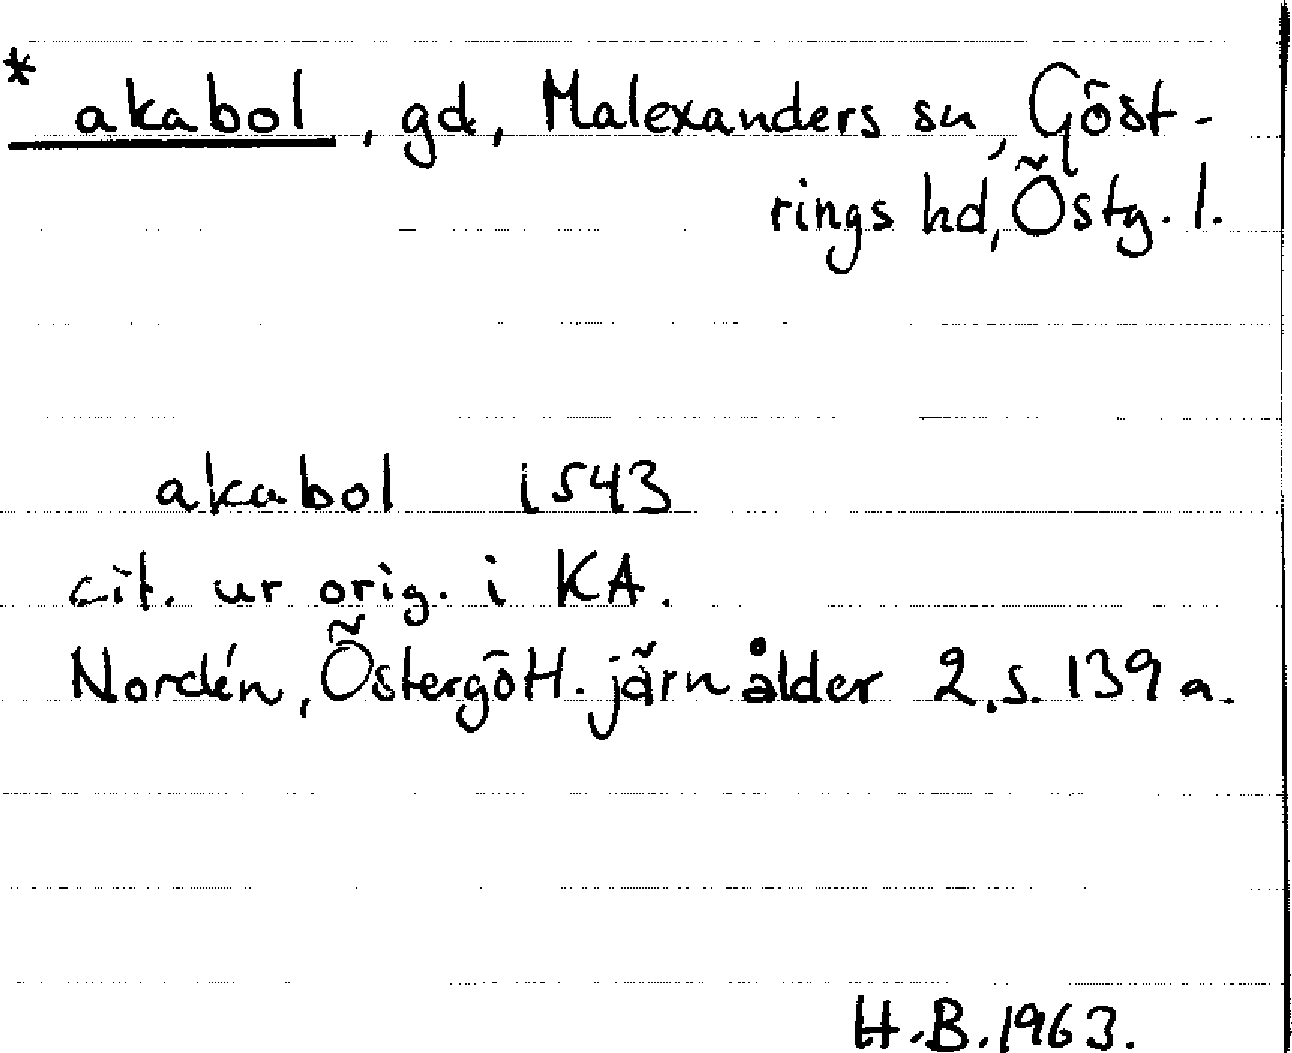 * akabol, gd, Malexanders sn, Göst-
rings hd, Östg. l.
akabol 1543
cit. ur orig. i KA.
Nordén, Östergött. järnålder 2, s. 139 a.
H.B. 1963.